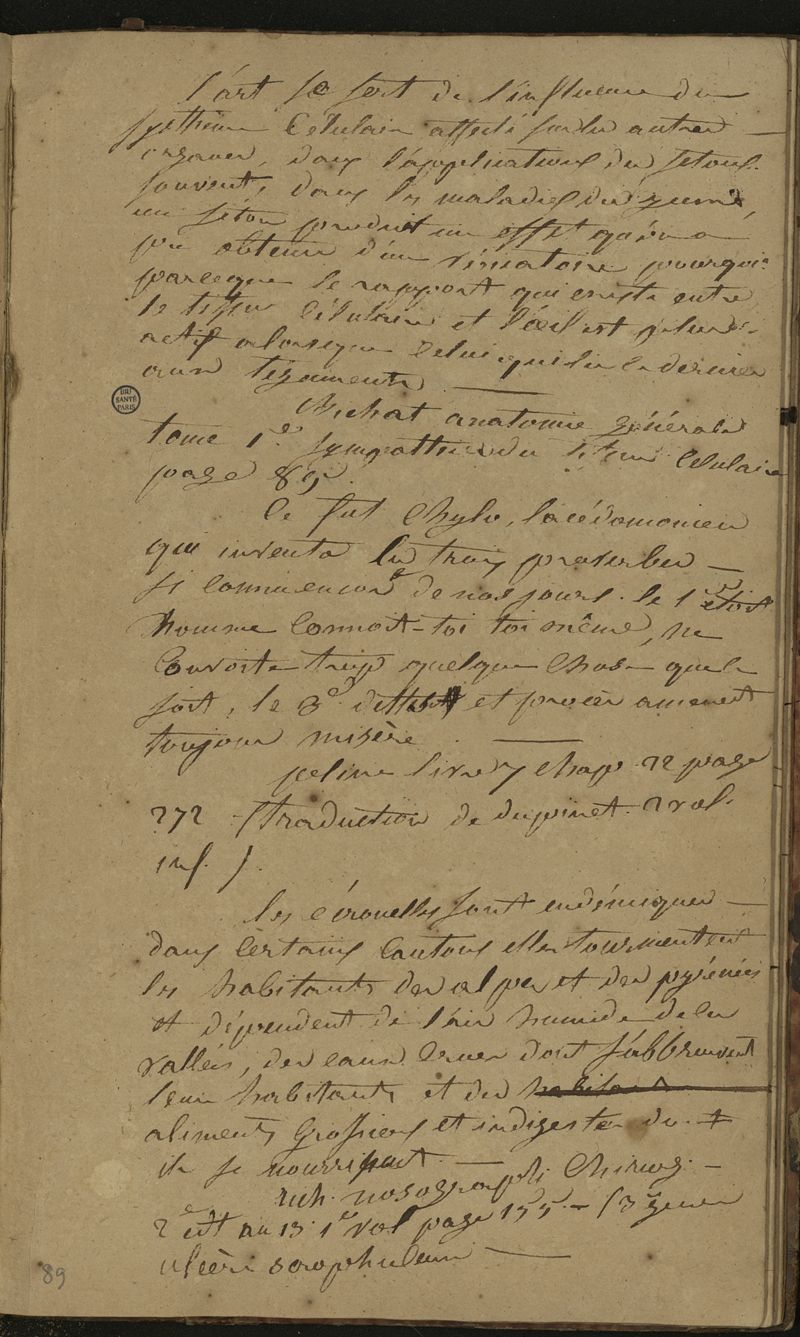 l'art se sert de l'influence du
systheme Célulair affecté sur les autres
organes, dans l'applications des setons.
souvent, dans les maladies des yeux,
un séton produit un effet qu'on a
pu obtenir d'un vésicatoire pourquoi
parceque le rapport qui existe entre
le tissu Célulaire et l'œil est plus
actif alorsque celui qui lie ce dernier
aux tégaments
Bichat anatomie générale
tome 1er sympathies du tissu Célulaire
page 89.
Ce fut Chylo, lacédémonien
qui inventa les trois proverbes
si connu encore de nos jours. le 1er étoit
homme Connoit-toi toi même, ne
Convoite trop quelque Chose que ce
soit, le 3e dettes et procès amenent
toujour misère
peline livre 7 Chap. 22 page
272 (traduction de dupinet. 2 vol.
inf. ).
les écrouelles sont endémiques
dans Certains Cantons elles tourmentent
les habitants des alpes et des pyrénées
et dépendent de l'air humide de les
vallées, des eaux Crues dont s'abbreuvent
leur habitants et des habitants
aliments Grossiers et indigestes du
ils se nourrissent.
rich. nosographi Chirurg.
2e edit an 13 1er vol page 155 - (3e genre
ulcère scrophuleux
89
BIU
SANTÉ
PARIS